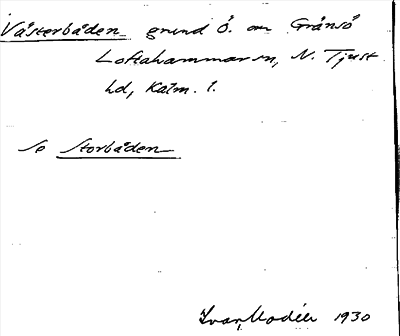 Västerbåden grund Ö. om Gränsö
Loftahammar sn, N. Tjust
hd, Kalm. l.
Se Storbåden
Ivar Modéer 1930